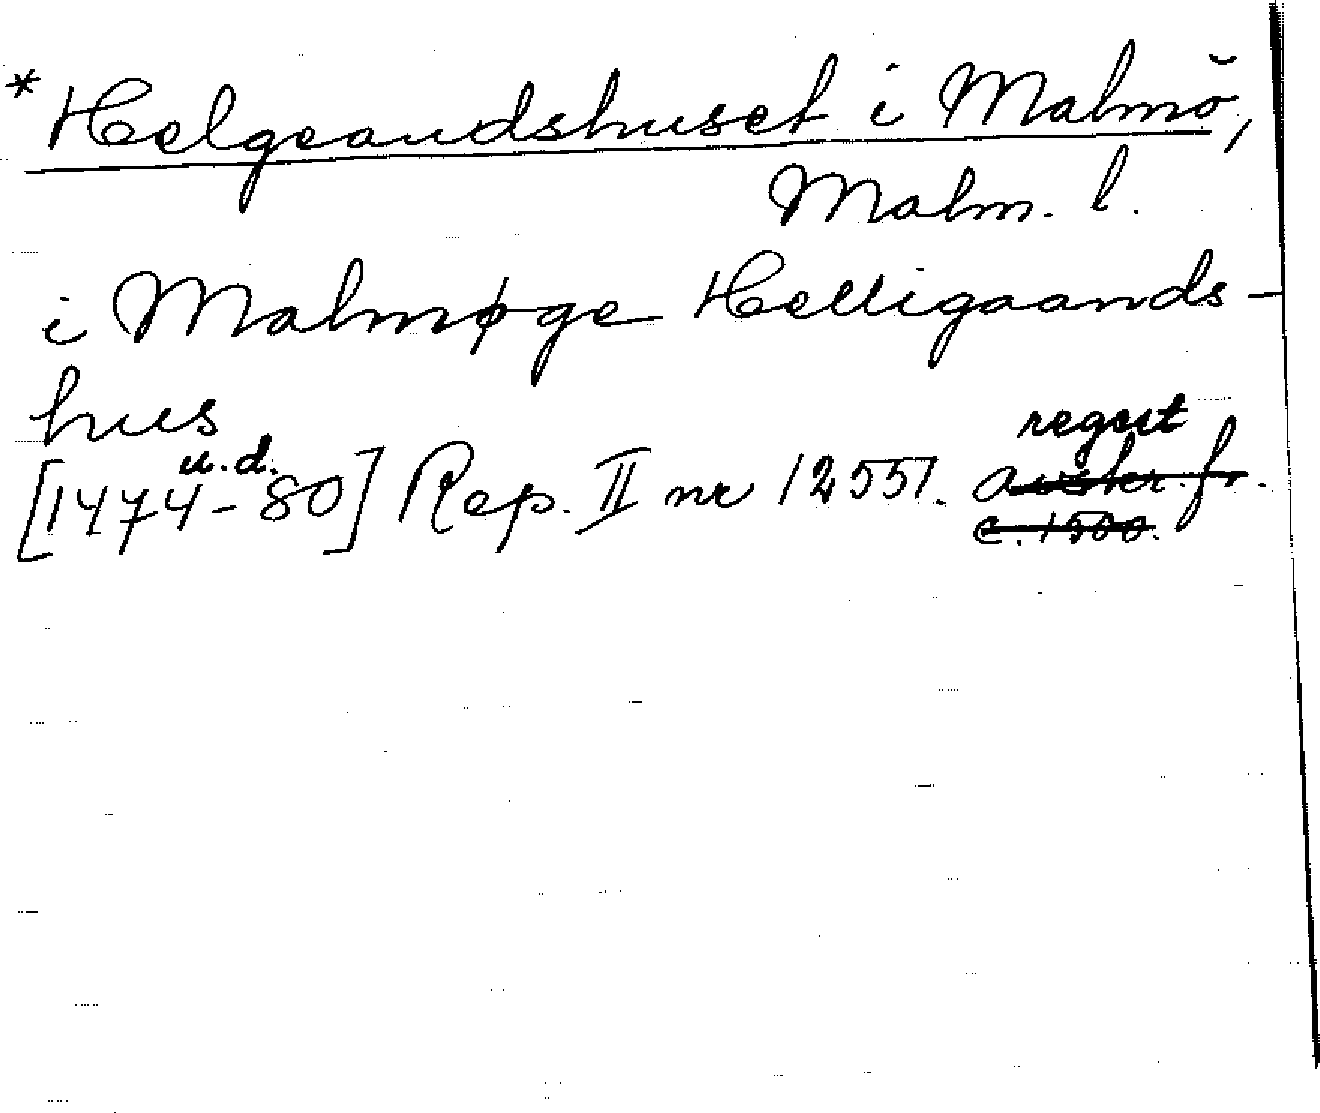 * Helgeandshuset i Malmö,
Malm. l.
i Malmøge Helligaands-
hus
u.d. regest
[1474-80] Rep. II nr 12557. avskr. fr.
c. 1500.